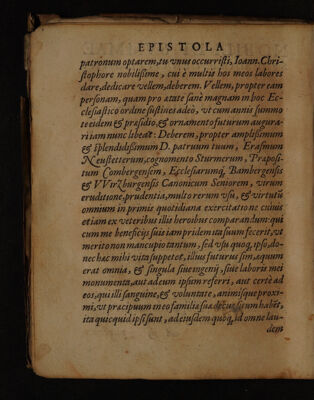 EPISTOLA
patronum optarem, tu vnus occurristi, Ioann. Chri-
stophore nobilißime, cui è multis hos meos labores
dare, dedicare vellem, deberem. Vellem, propter eam
personam, quam pro ætate sanè magnam in hoc Ec-
clesiastico ordine sustines adeò, vt cum annis summo
te eidem & præsidio, & ornamento futurum augura-
ri iam nunc libeat: Deberem, propter amplißimum
& splendidißimum D. patruum tuum, Erasmum
Neustetterum, cognomento Sturmerum, Præposi-
tum Combergensem, Ecclesiarumq; Bambergensis
& VVirzburgensis Canonicum Seniorem, virum
eruditione, prudentia, multo rerum vsu, & virtutis
omnium in primis quotidiana exercitatione cuiuis
etiam ex veteribus illis heroibus comparandum: qui
cum me beneficijs suis iam pridem ita suum fecerit, vt
meritò non mancupio tantum, sed vsu quoq; ipso, do-
nec hac mihi vita suppetet, illius futurus sim, æquum
erat omnia, & singula siue ingenij, siue laboris mei
monumenta, aut ad eum ipsum referri, aut certè ad
eos, qui illi sanguine, & voluntate, animisque proxi-
mi, vt præcipuum in eo familiæ suæ decus situm habẽt,
ita quicquid ipsi sunt, ad eiusdem quoq; id omne lau-
dem